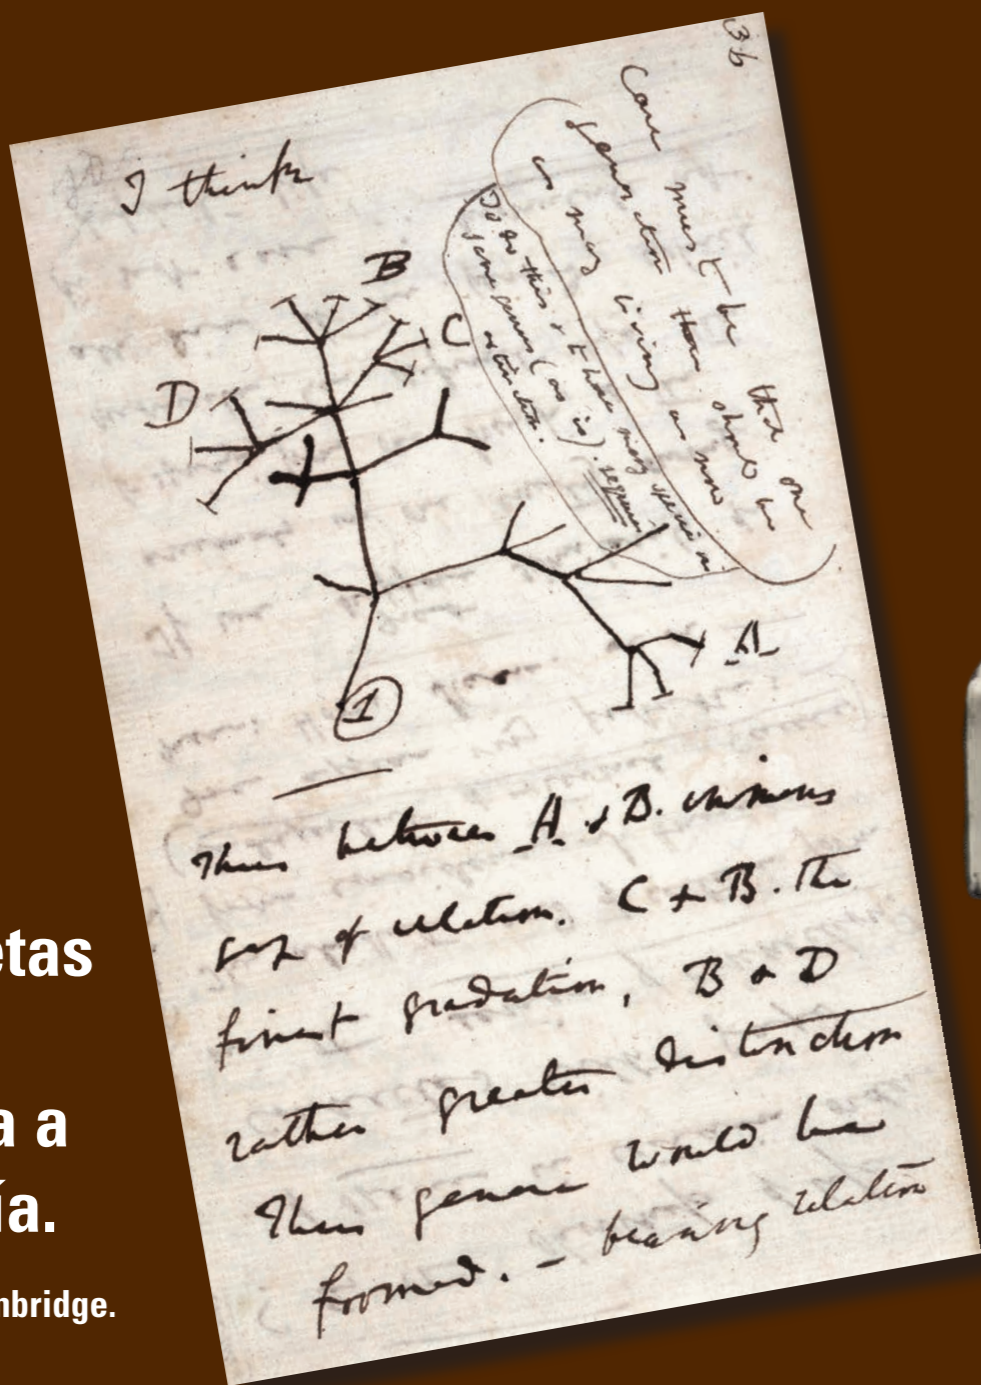 36
I think
Case must be that one
generation then should be
as many living as now
To do this & to have many species in
same genus (as is). requires
extinction.
B
C
D
A
1
Thus between A & B. immens
gap of relation. C & B. The
finest gradation, B & D
rather greater distinction
Thus genera would be
formed. — bearing relation
etas
a a
ía.
nbridge.